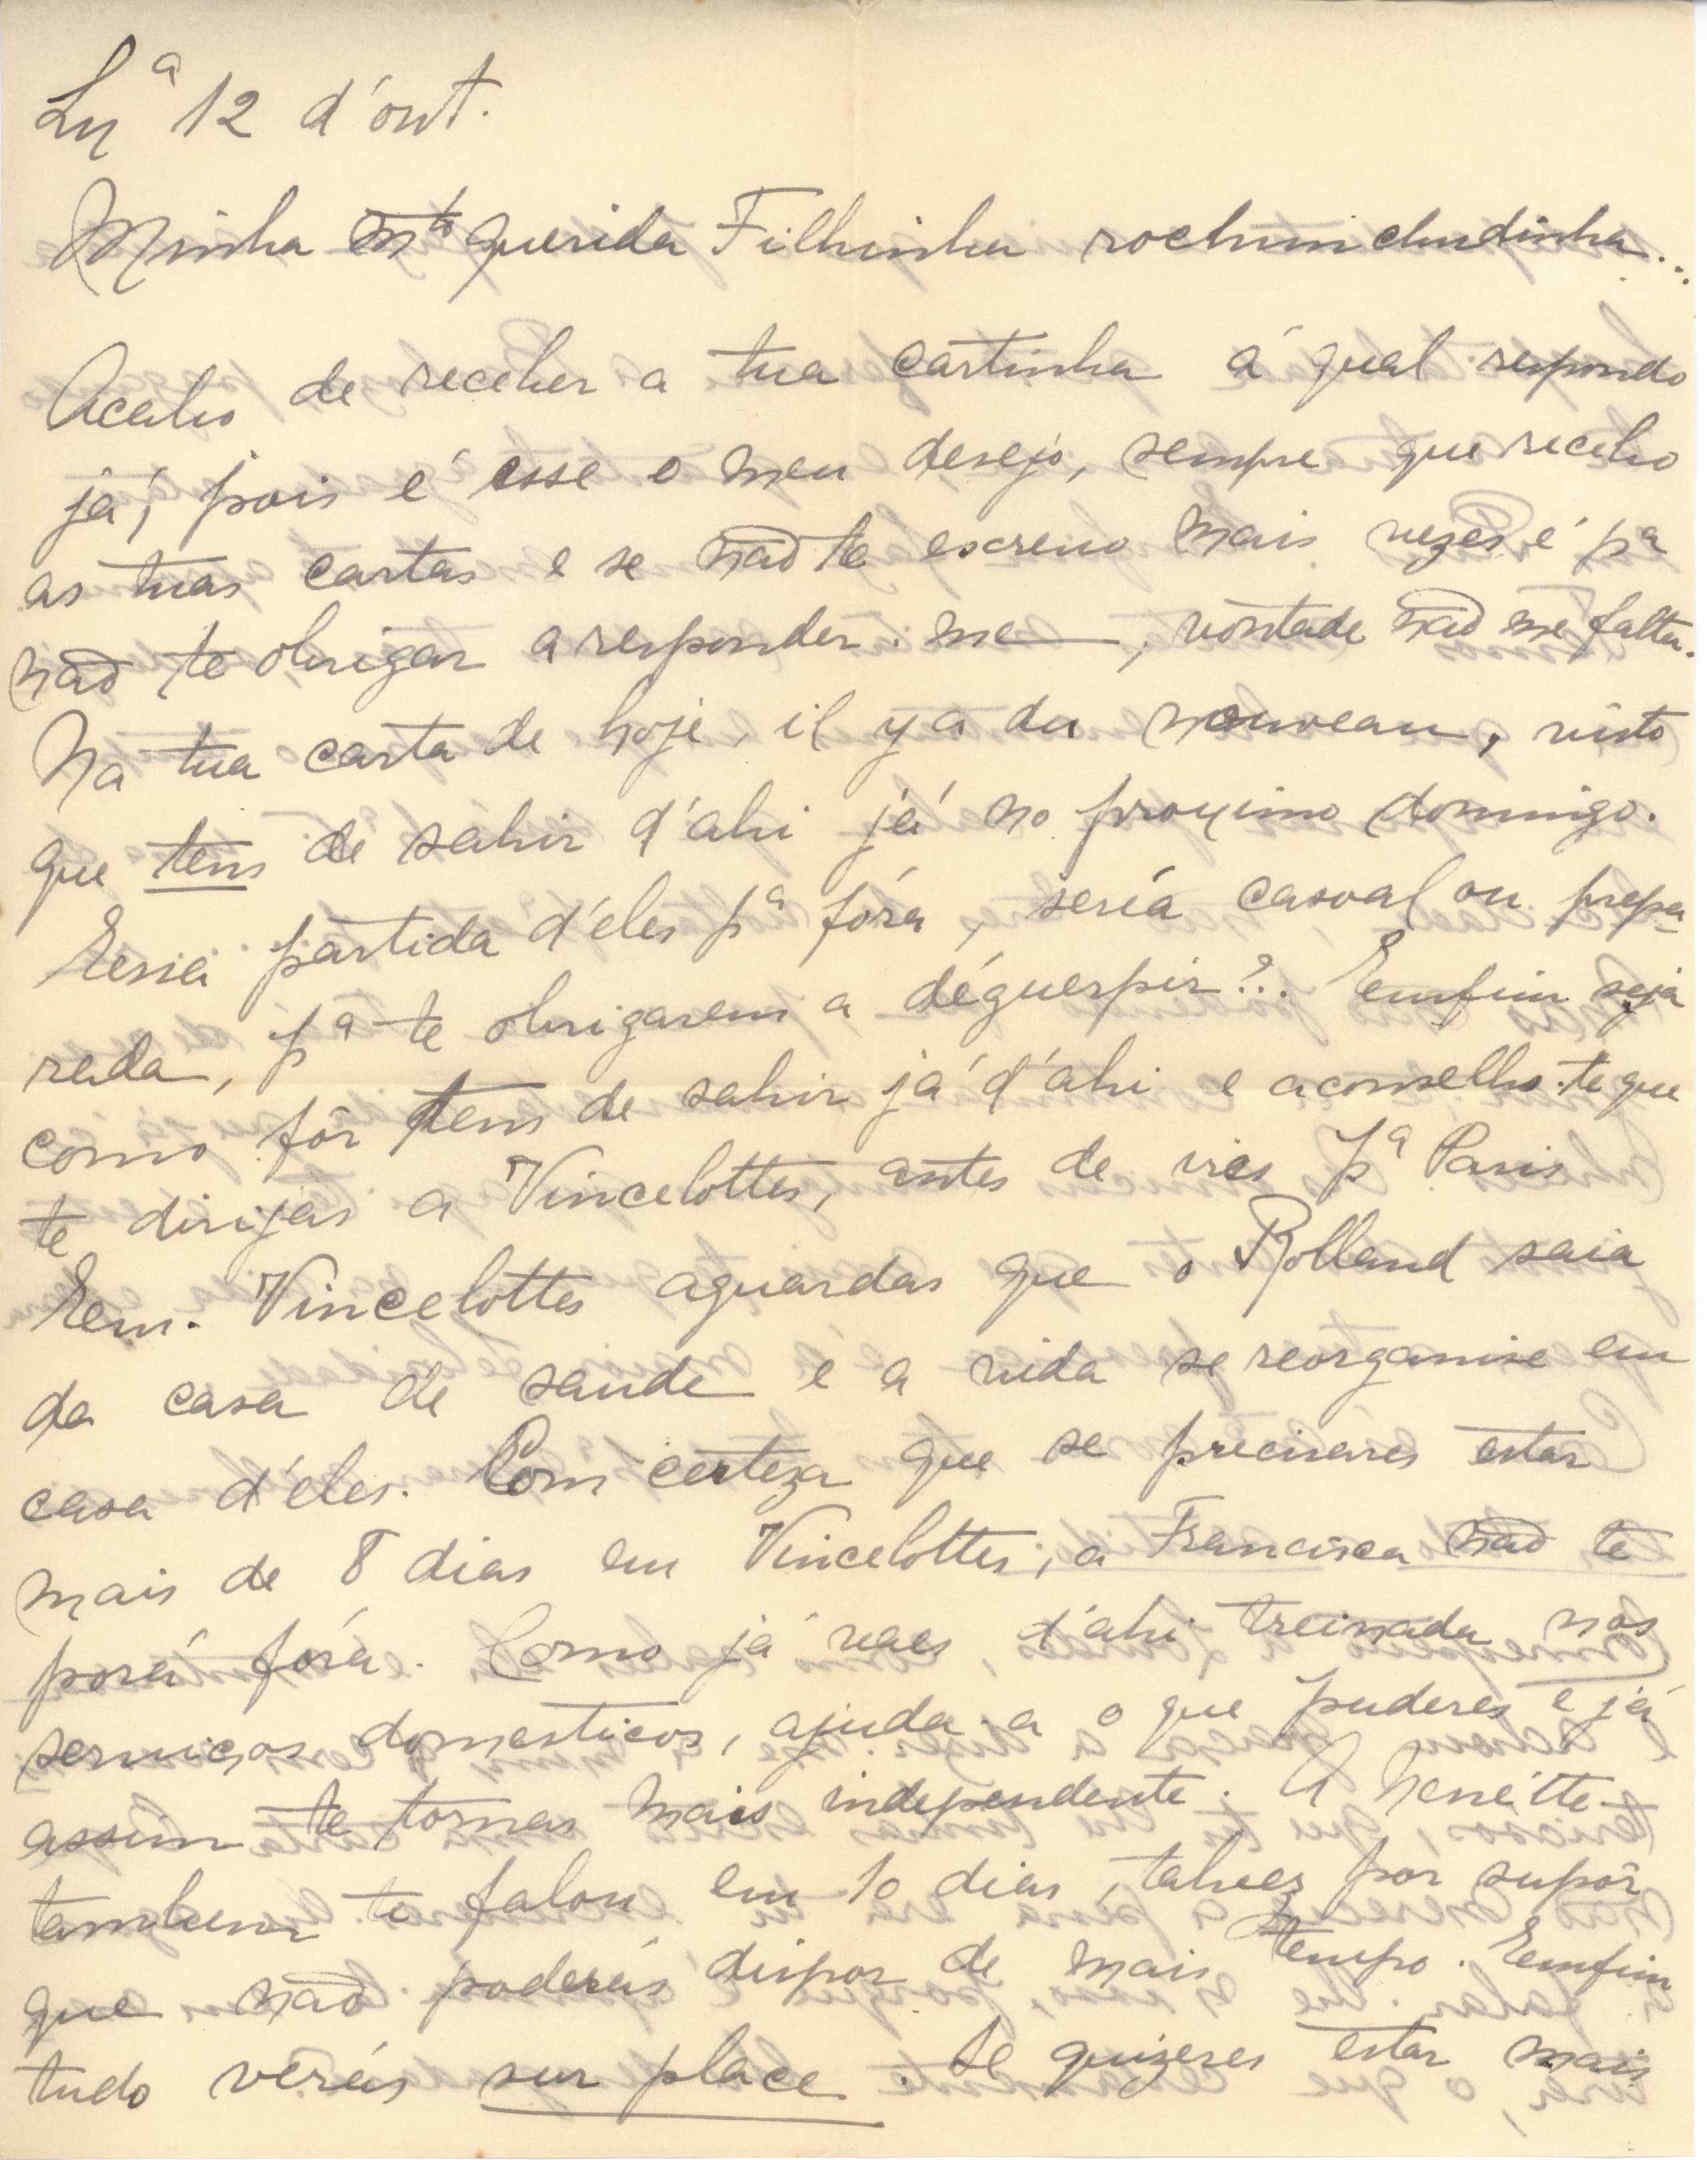 12 d'out.
Minha mto querida Filhinha rochunchudinha...
Acabo de receber a tua cartinha á qual respondo
já, pois é esse o meu desejo, sempre que recebo
as tuas cartas e se não te escrevo mais vezes é pª
não te obrigar a responder-me, vontade não me falta.
Na tua carta de hoje, il y a du nouveau, visto
que tens de sahir d'ahi já no proximo domingo.
Essa partida d'eles pª fóra, seria casoal ou prepa-
rada, pª te obrigarem a déguerpir?.. Emfim seja
como fôr tens de sahir já d'ahi e aconselho-te que
te dirijas a Vincelottes, antes de vires pª Paris
Em Vincelottes aguardas que o Rolland saia
da casa de saude e a vida se reorganise em
casa d'eles. Com certeza que se precisares estar
mais de 8 dias em Vincelottes, a Francisca não te
porá fóra. Como já vaes d'ahi treinada nos
serviços domesticos, ajuda-a o que puderes e já
assim te tornas mais independente. A Nenétte
tambem te falou em 10 dias, talvez por supôr
que não poderás dispor de mais tempo. Emfim
tudo verás sur place. Se quizeres estar mais